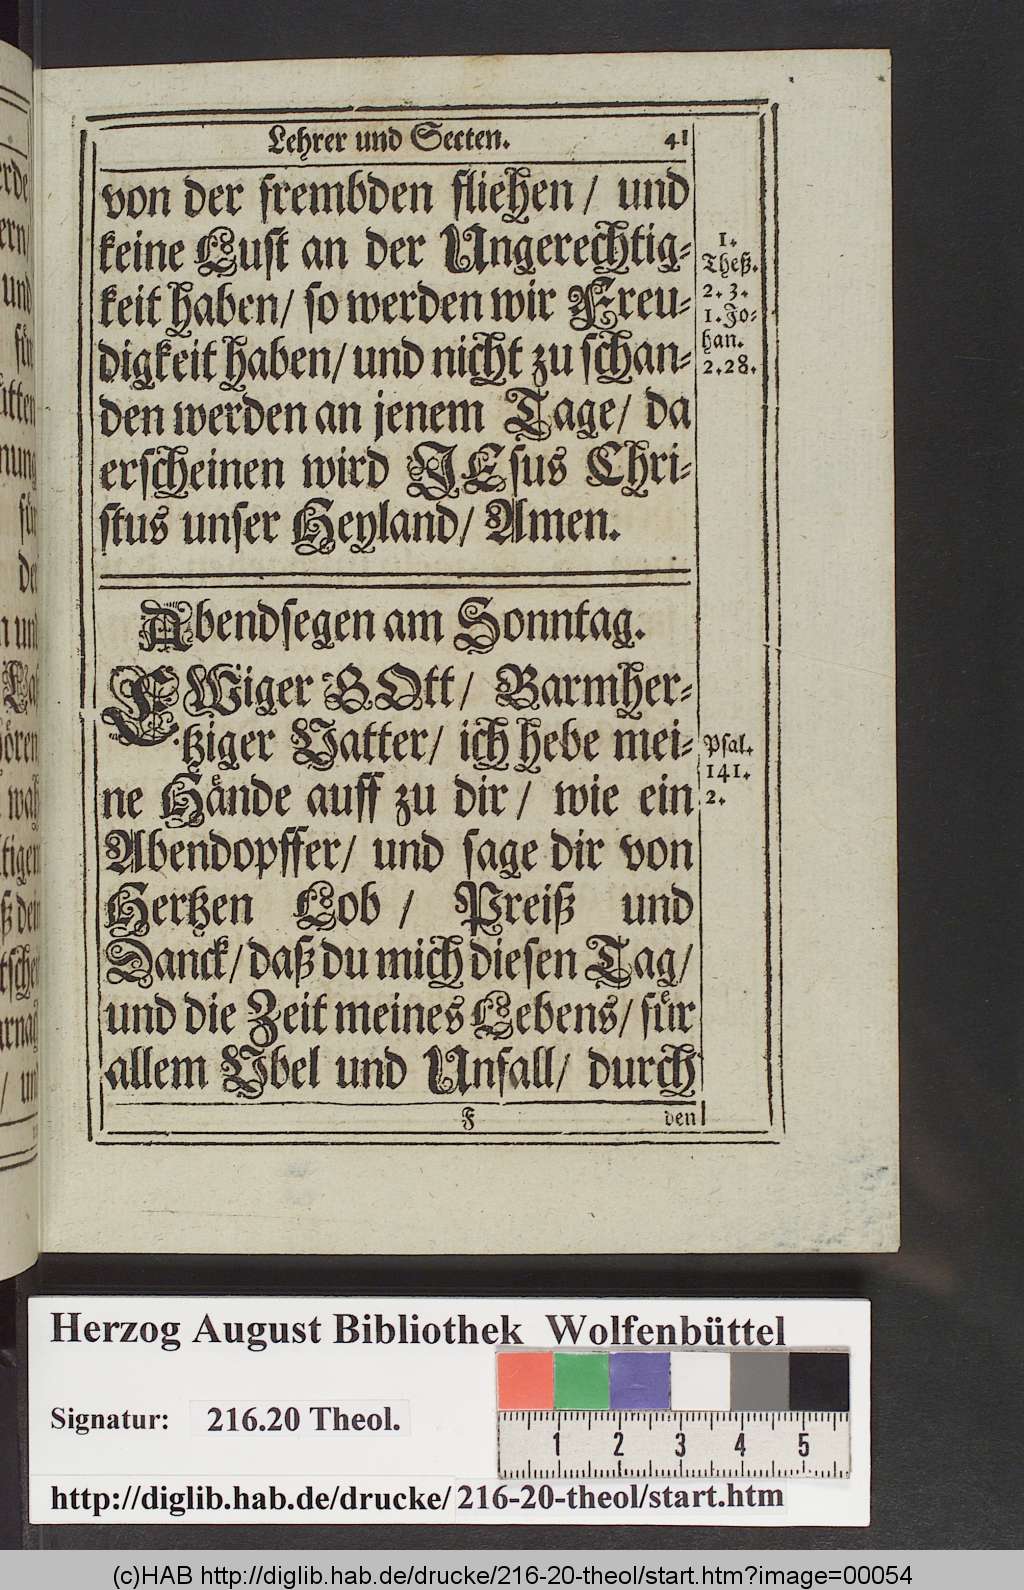 Lehrer und Secten. 41
von der frembden fliehen / und
keine Lust an der Ungerechtig⸗
keit haben / so werden wir Freu⸗
digkeit haben / und nicht zu schan⸗
den werden an jenem Tage / da
erscheinen wird JEsus Chri⸗
stus unser Heyland / Amen.
1.
Theß.
2. 3.
1. Jo⸗
han.
2. 28.
Abendsegen am Sonntag.
EWiger GOtt / Barmher⸗
tziger Vatter / ich hebe mei⸗
ne Hände auff zu dir / wie ein
Abendopffer / und sage dir von
Hertzen Lob / Preiß und
Danck / daß du mich diesen Tag /
und die Zeit meines Lebens / für
allem Vbel und Unfall / durch
Psal.
141.
2.
F den
Herzog August Bibliothek Wolfenbüttel
Signatur: 216.20 Theol.
1 2 3 4 5
http://diglib.hab.de/drucke/216-20-theol/start.htm
(c)HAB http://diglib.hab.de/drucke/216-20-theol/start.htm?image=00054